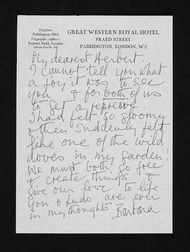 Telephone:
Paddington 8064
Telegraphic Address:
GREAT WESTERN ROYAL HOTEL
PRAED STREET
PADDINGTON, LONDON, W.2
My dearest Herbert.
I cannot tell you what
a joy it was to see
you & for both of us
to get a reprieve.
I had felt so gloomy
& then suddenly felt
like one of the wild
doves in my garden!
We must both be free
& create things &
give our love to life
You & Ludo are ever
in my thoughts
Barbara